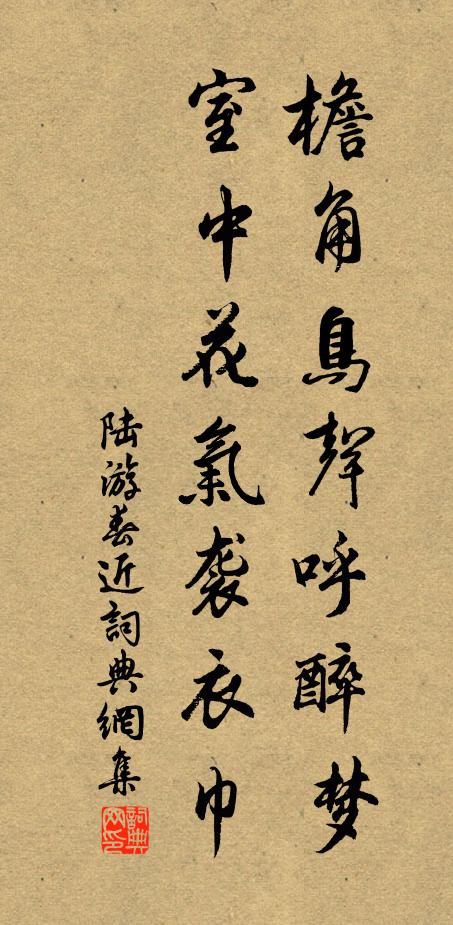 檐角鳥聲呼醉梦
室中花氣袭衣巾
陆游春近詞典網集
詞典网印